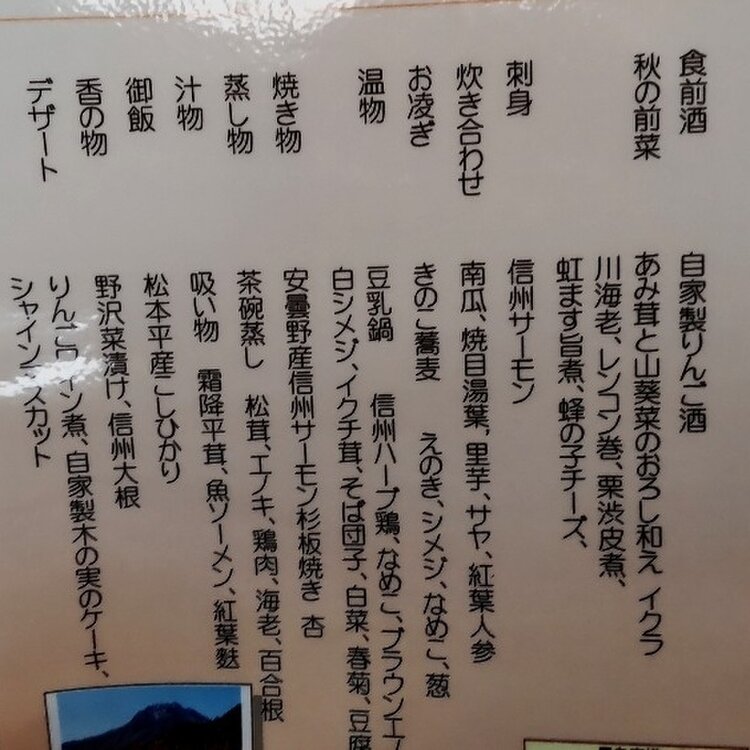 食前酒　自家製りんご酒
秋の前菜　あみ茸と山葵菜のおろし和え イクラ
川海老、レンコン巻、栗渋皮煮、
虹ます旨煮、蜂の子チーズ、
刺身　信州サーモン
炊き合わせ　南瓜、焼目湯葉,里芋、サヤ、紅葉人参
お凌ぎ　きのこ蕎麦　えのき、シメジ、なめこ、葱
温物　豆乳鍋　信州ハーブ鶏、なめこ、ブラウンエノ
白シメジ、イクチ茸、そば団子、白菜、春菊、豆腐
焼き物　安曇野産信州サーモン杉板焼き 杏
蒸し物　茶碗蒸し　松茸、エノキ、鶏肉、海老、百合根
汁物　吸い物　霜降平茸、魚ソーメン、紅葉麩
御飯　松本平産こしひかり
香の物　野沢菜漬け、信州大根
デザート　りんごワイン煮、自家製木の実のケーキ、
シャインマスカット